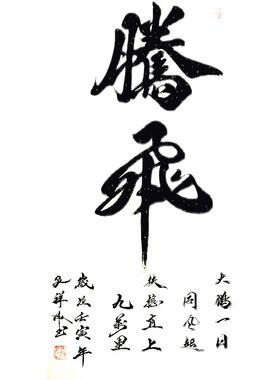 騰飛
大鵬一日
同風起
扶搖直上
九萬里
歲次壬寅年
孔祥書